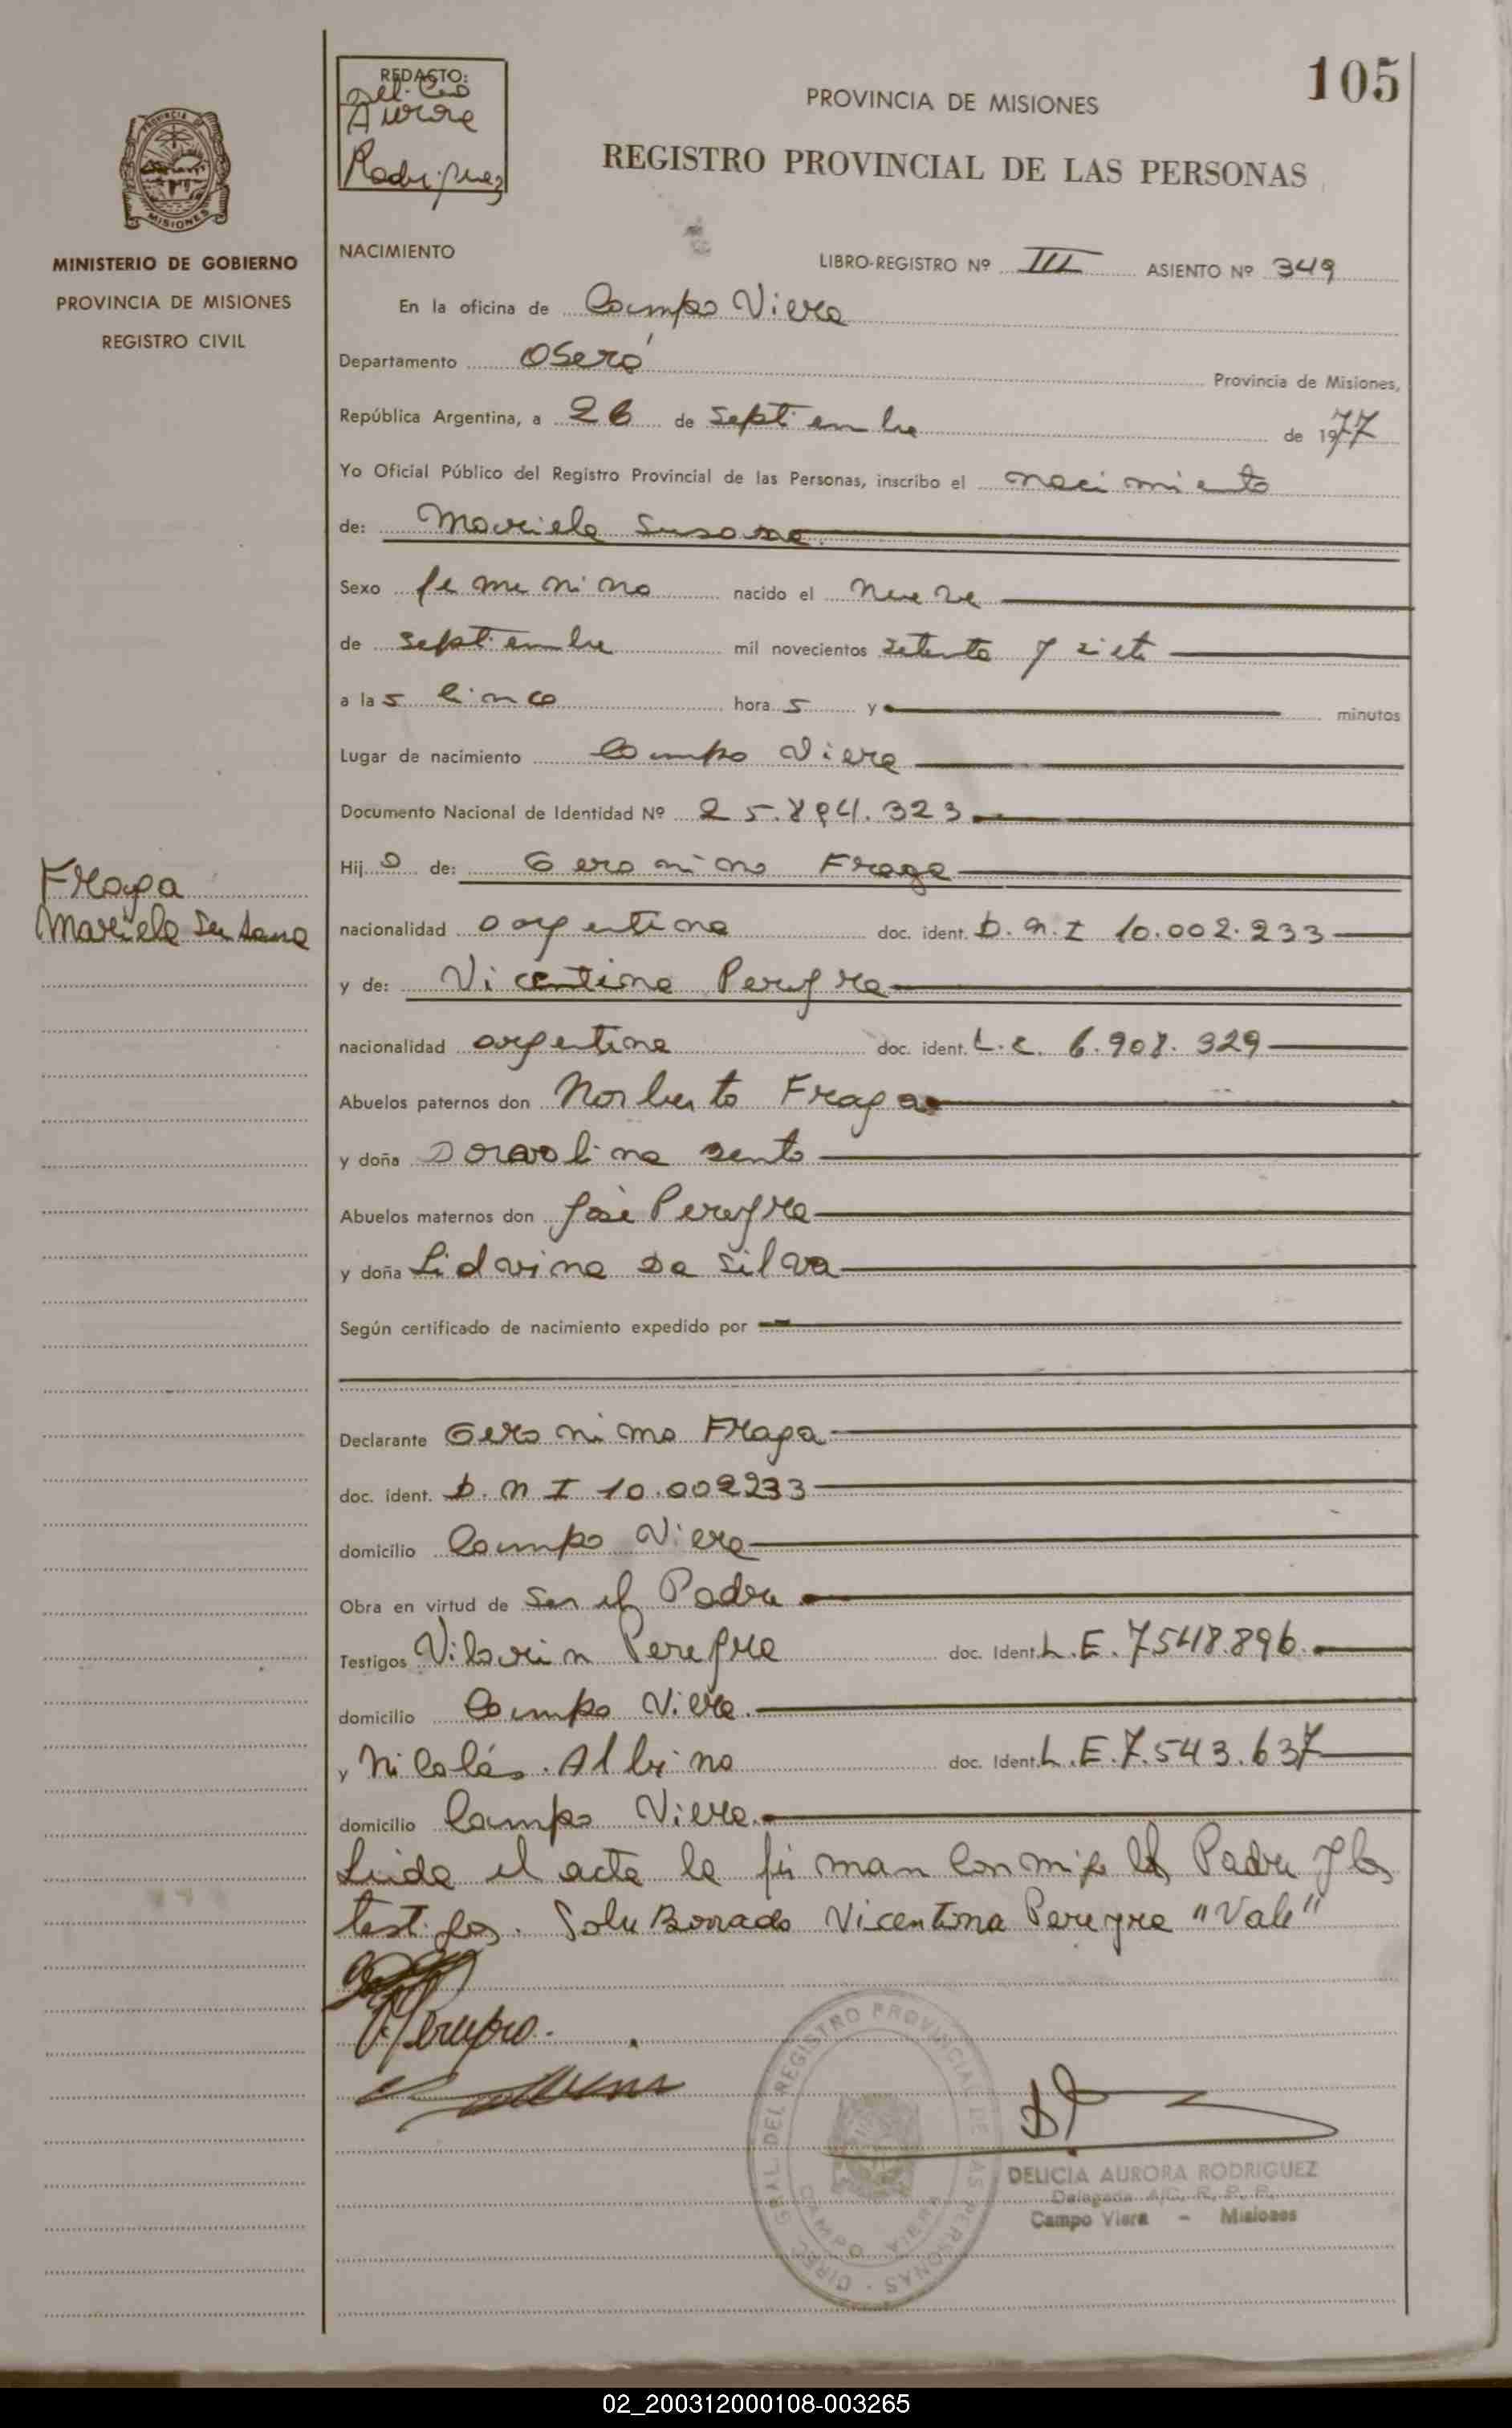 105
REDACTO:
Del. Cia
Aurora
Rodriguez
PROVINCIA DE MISIONES
REGISTRO PROVINCIAL DE LAS PERSONAS
MINISTERIO DE GOBIERNO
PROVINCIA DE MISIONES
REGISTRO CIVIL
NACIMIENTO
LIBRO-REGISTRO Nº III ASIENTO Nº 349
En la oficina de Campo Viera
Departamento Oberá Provincia de Misiones,
República Argentina, a 26 de septiembre de 1977
Yo Oficial Público del Registro Provincial de las Personas, inscribo el nacimiento
de: Mariela Susana
Sexo femenino nacido el nueve
de septiembre mil novecientos setenta y siete
a las cinco horas y minutos
Lugar de nacimiento Campo Viera
Documento Nacional de Identidad Nº 25.894.323
Hija de: Geronimo Fraga
nacionalidad argentina doc. ident. D.N.I 10.002.233
y de: Vicentina Pereyra
nacionalidad argentina doc. ident. L.C. 6.908.329
Abuelos paternos don Norberto Fraga
y doña Doravolina Sento
Abuelos maternos don José Pereyra
y doña Lidvina Da Silva
Según certificado de nacimiento expedido por
Fraga
Mariela Susana
Declarante Geronimo Fraga
doc. ident. D.N.I 10.002233
domicilio Campo Viera
Obra en virtud de ser el Padre
Testigos Vilarin Pereyra doc. Ident. L.E. 7548.896
domicilio Campo Viera.
y Nicolás Albino doc. Ident. L.E. 7.543.637
domicilio Campo Viera.
Leida el acta la firman conmigo el Padre y los
testigos. Sobre Borrado Vicentina Pereyra "Vale"
DIREC. GRAL. DEL REGISTRO PROVINCIAL DE LAS PERSONAS
CAMPO VIERA
DELICIA AURORA RODRIGUEZ
Delegada A/C. R. P. P.
Campo Viera - Misiones
02_200312000108-003265